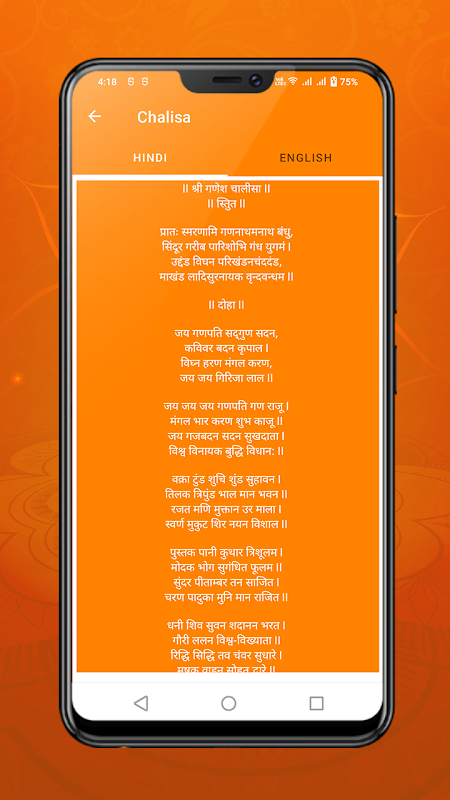 4:18 75%
Chalisa
HINDI ENGLISH
॥ श्री गणेश चालीसा ॥
॥ स्तुित ॥
प्रातः स्मरणामि गणनाथमनाथ बंधु,
सिंदूर गरीब पारिशोभि गंध युगमं।
उद्दंड विघन परिखंडनचंददंड,
माखंड लादिसुरनायक वृन्दवन्धम ॥
॥ दोहा ॥
जय गणपति सद्गुण सदन,
कविवर बदन कृपाल ।
विघ्न हरण मंगल करण,
जय जय गिरिजा लाल ॥
जय जय जय गणपति गण राजू ।
मंगल भार करण शुभ काजू ॥
जय गजबदन सदन सुखदाता ।
विश्व विनायक बुद्धि विधान: ॥
वक्रा टुंड शुचि शुंड सुहावन ।
तिलक त्रिपुंड भाल मान भवन ॥
रजत मणि मुक्तान उर माला ।
स्वर्ण मुकुट शिर नयन विशाल ॥
पुस्तक पानी कुधार त्रिशूलम ।
मोदक भोग सुगंधित फूलम ॥
सुंदर पीताम्बर तन साजित ।
चरण पादुका मुनि मान राजित ॥
धनी शिव सुवन शदानन भरत ।
गौरी ललन विश्व-विख्याता ॥
रिद्धि सिद्धि तव चंवर सुधारे ।
मूषक वाहन सोहत द्वारे ॥